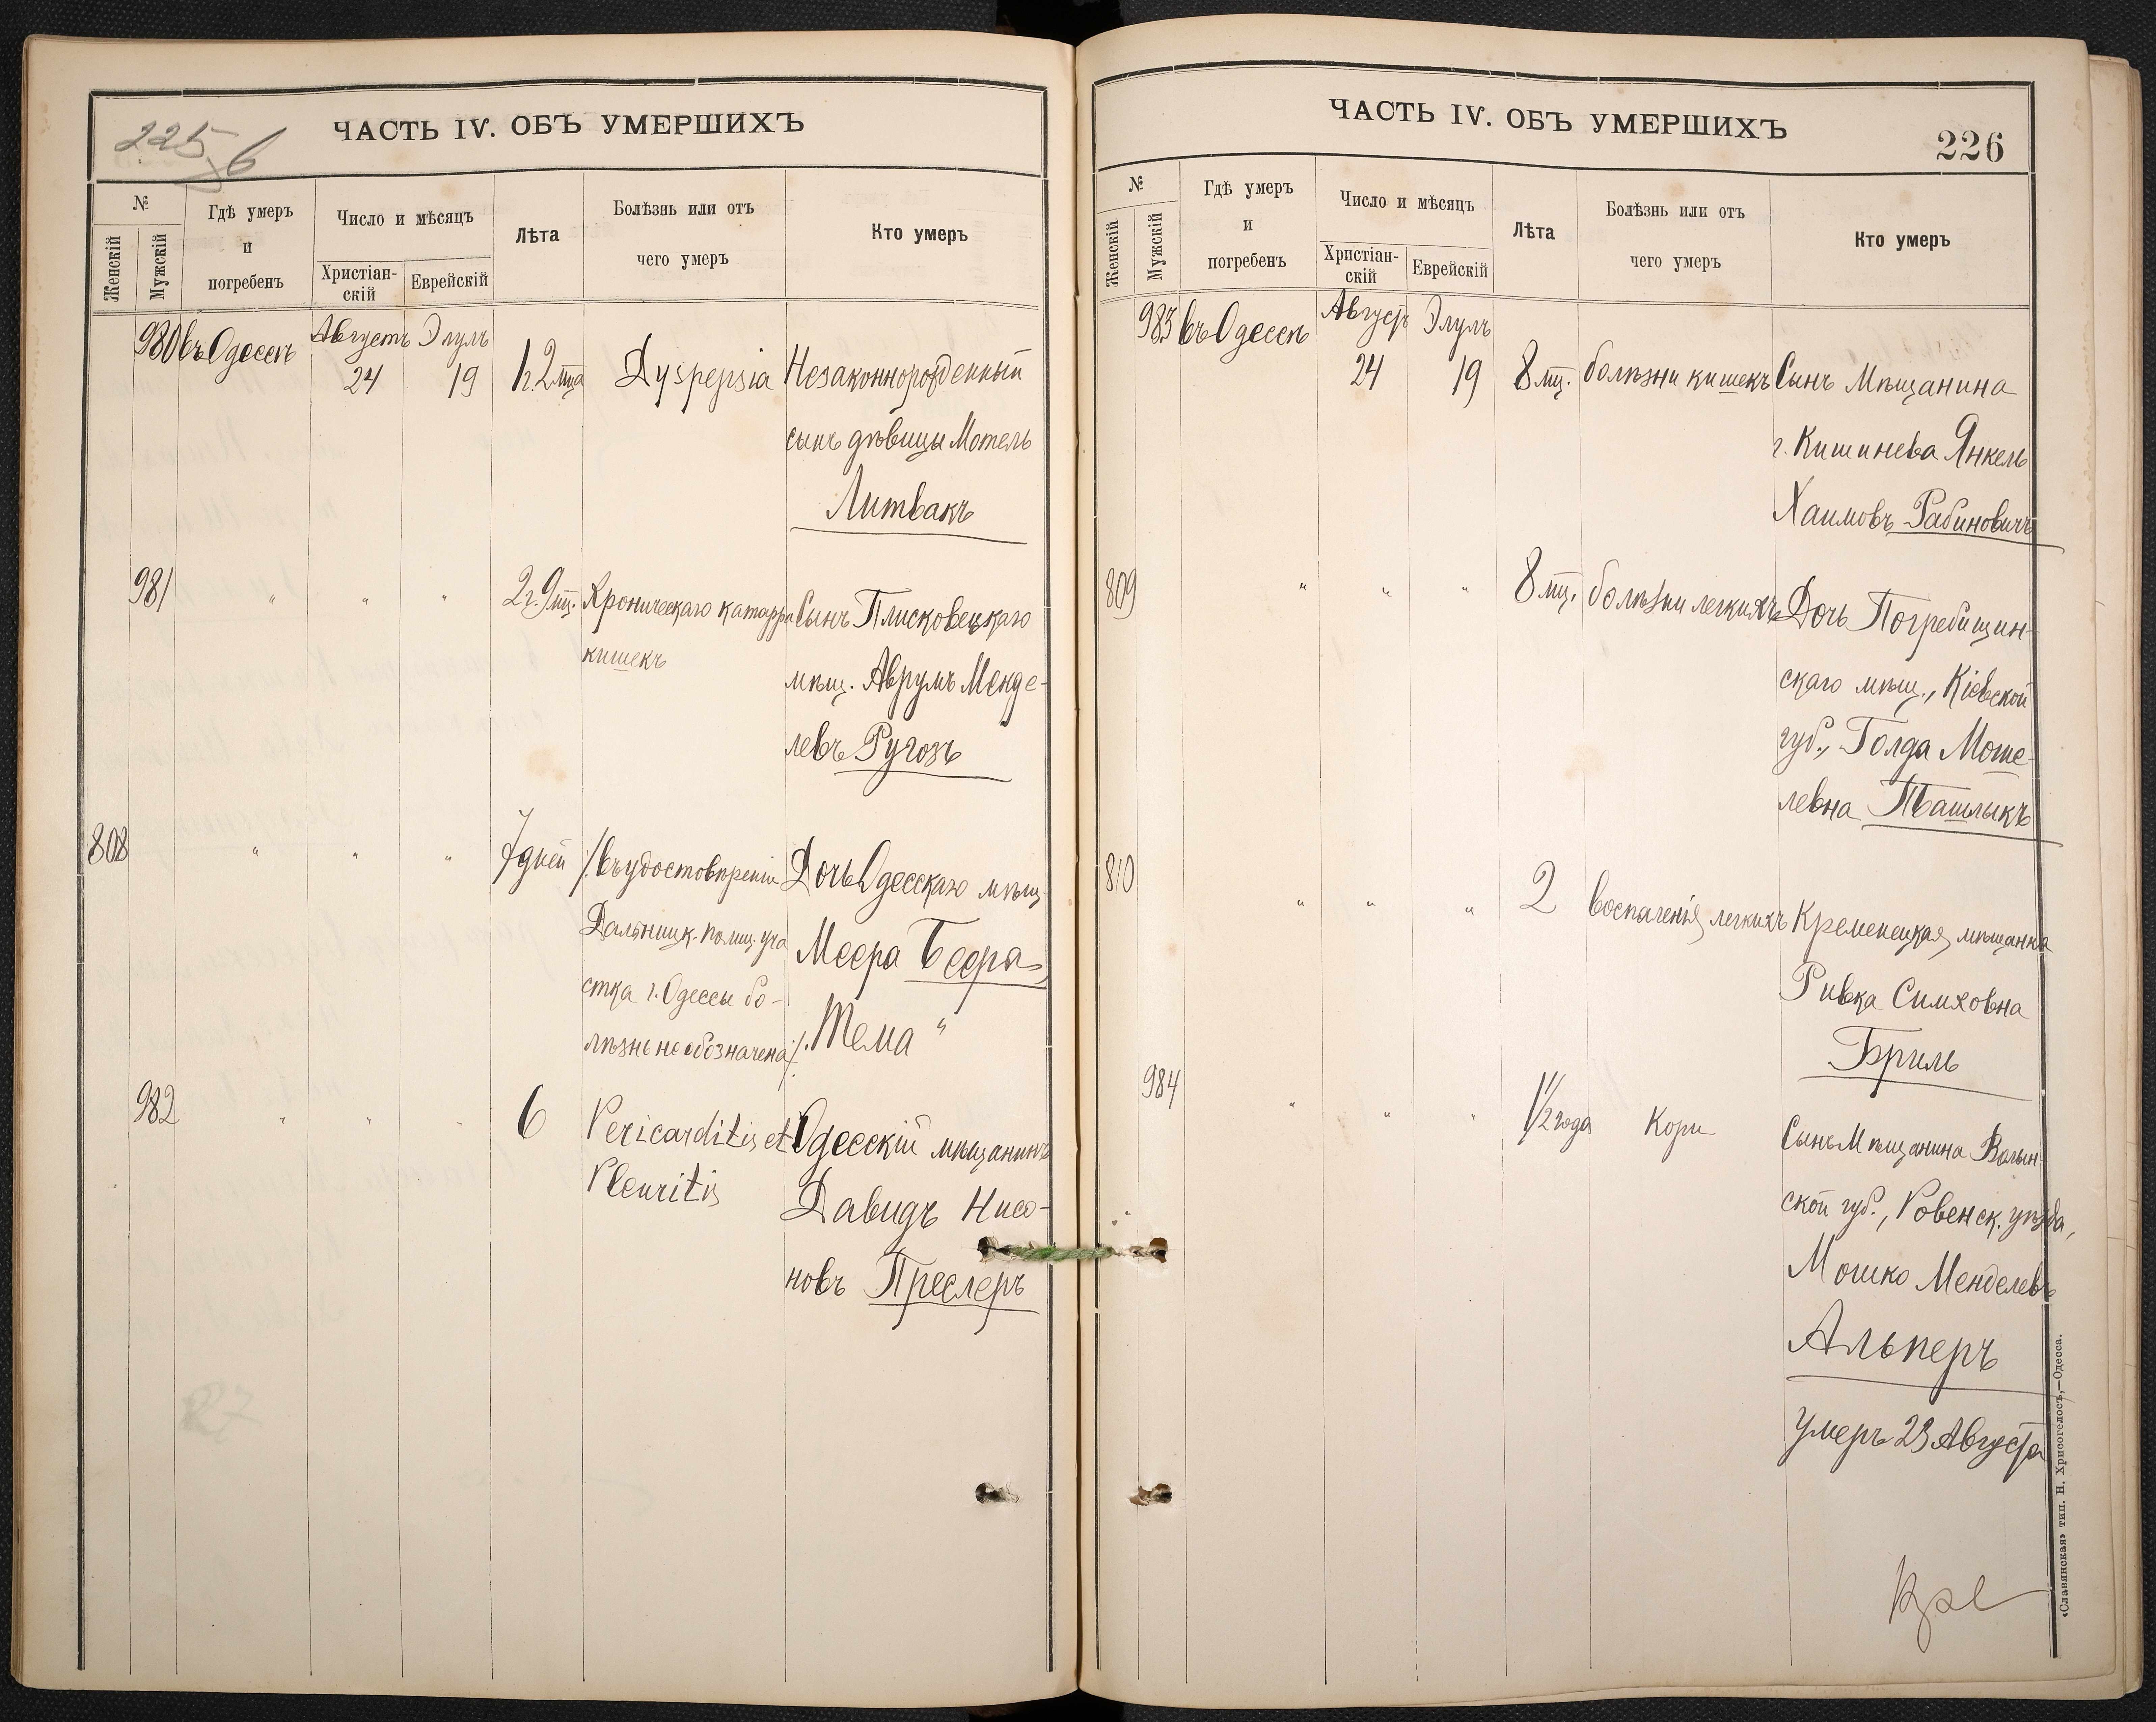 225 б
ЧАСТЬ IV. ОБЪ УМЕРШИХЪ
№
Женскій
Мужскій
Гдѣ умеръ
и
погребенъ
Число и мѣсяцъ
Христіан-
скій
Еврейскій
Лѣта
Болѣзнь или отъ
чего умеръ
Кто умеръ
980 въ Одессѣ Августъ Элулъ
24 19 1г. 2 мца Dyspepsia Незаконнорожденный
сынъ дѣвицы Мотель
Литвакъ
981 " " " 2г. 9 мц. Хроническаго катарра Сынъ Плисковецкаго
кишекъ
мѣщ. Аврумъ Менде-
левъ Ругозъ
808 " " " 7 дней /.въ удостовѣреніи Дочь Одесскаго мѣщ.
Дальницк. полиц. уча
стка г. Одессы бо-
лѣзнь не обозначена/.
Меера Беера
"Тема"
982 " " " 6 Pericarditis et Одесскій мѣщанинъ
Pleuritis
Давидъ Нисо-
новъ Преслеръ
ЧАСТЬ IV. ОБЪ УМЕРШИХЪ
226
№
Женскій
Мужскій
Гдѣ умеръ
и
погребенъ
Число и мѣсяцъ
Христіан-
скій
Еврейскій
Лѣта
Болѣзнь или отъ
чего умеръ
Кто умеръ
983 въ Одессѣ Августъ Элулъ
24 19 8 мц. болѣзни кишекъ Сынъ Мѣщанина
г. Кишинева Янкель
Хаимовъ Рабиновичъ
809 " " " 8 мц. болѣзни легкихъ Дочь Погребищин-
скаго мѣщ., Кіевской
губ., Голда Моше-
левна Пташлыкъ
810 " " " 2 воспаленія легкихъ Кременецкая мѣщанка
Ривка Симховна
Бриль
984 " " " 1 1/2 года Кори Сынъ Мѣщанина Волын-
ской губ., Ровенск. уѣзда,
Мошко Менделевъ
Альперъ
умеръ 23 Августа
«Славянская» тип. Н. Хрисогелосъ,—Одесса.